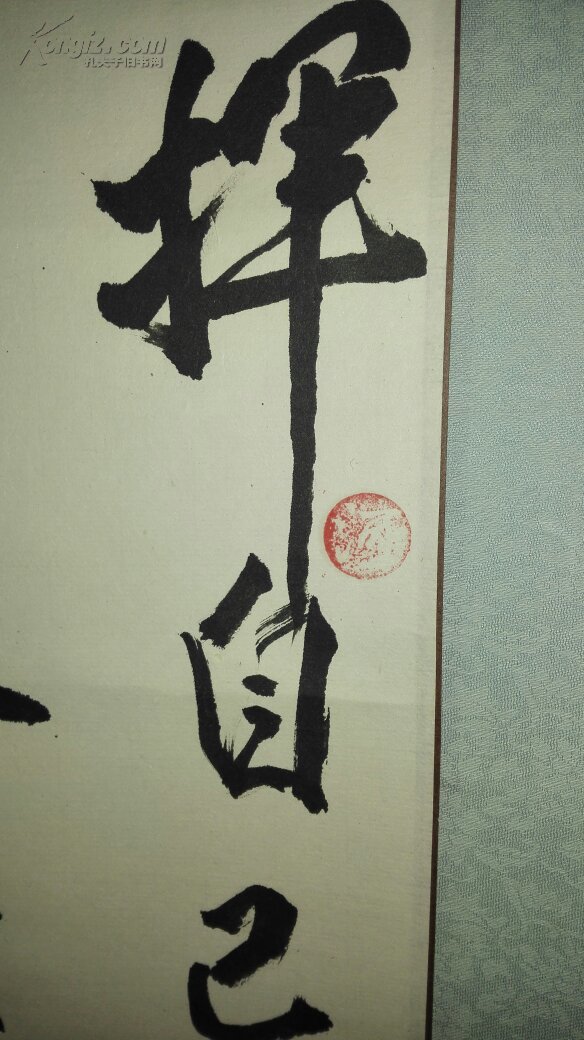 Kongfz.com
孔夫子旧书网
揮自己